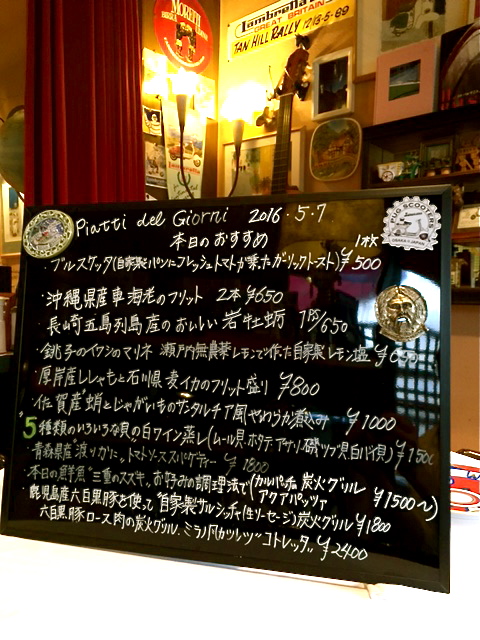 MORETTI
Lambretta
GREAT BRITAIN
TAN HILL RALLY 12/13-5-89
Piatti del Giorni 2016.5.7
本日のおすすめ
1枚
・ブルスケッタ(自家製パンにフレッシュトマトが乗ったガーリックトースト)¥500
・沖縄県産車海老のフリット 2本¥650
・長崎五島列島産のおいしい岩牡蛎 1P/650
・銚子のイワシのマリネ 瀬戸内無農薬レモンで作った自家製レモン塩
・厚岸産ししゃもと石川県麦イカのフリット盛り ¥800
・佐賀産蛸とじゃがいものサンタルチア風やわらか煮込み ¥1000
5種類のいろいろな貝の白ワイン蒸し(ムール貝ホタテ.アサリ.磯ツブ貝白バイ貝)¥1500
・青森県産"渡りがに"トマトソーススパゲティー ¥1800
・本日の鮮魚"三重のスズキ"お好みの調理法で(カルパッチョ 炭火グリル
アクアパッツァ ¥1500〜)
・鹿児島産六白黒豚を使って"自家製サルシッチャ(生ソーセージ)炭火グリル ¥1800
六白黒豚ロース肉の炭火グリル.ミラノ風カツレツ"コトレッタ" ¥2400